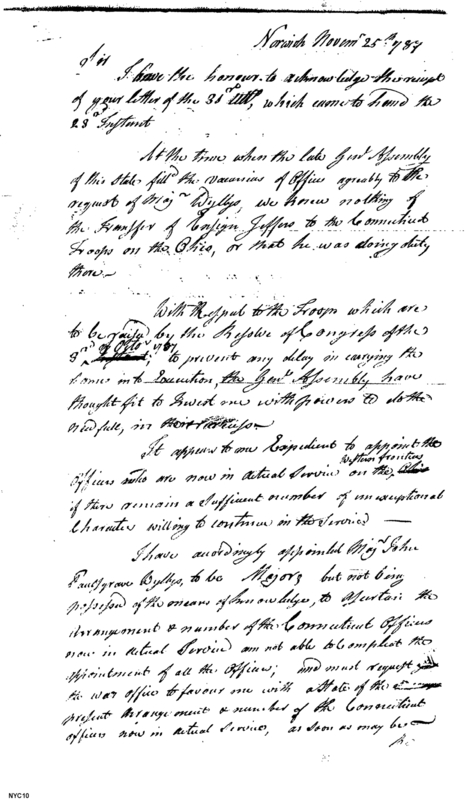 Norwich Novemr 25th 1787
Sir
I have the honour to acknowledge the receipt
of your letter of the 31st Ulto, which came to hand the
23d Instant
At the time when the late Genl Assembly
of this State fill'd the vacancies of Office agreably to the
request of Majr Wyllys, we knew nothing of
the Transfer of Ensign Jeffers, to the Connecticut
Troops on the Ohio, or that he was doing duty
there -
With respect to the Troops which are
to be raised by the Resolve of Congress of the
of Octor 1787
3d Instant; to prevent any delay in carrying the
same into Execution, the Genl Assembly have
thought fit to Invest me with powers to do the
needfull, in their recess -
It appears to me Expedient to appoint the
Western frontiers
Officers who are now in actual Service on the Ohio
if there remain a Sufficient number of unexceptional
Character willing to continue in the Service -
I have accordingly appointed Majr John
Paulsgrave Wyllys, to be Major; but not being
possessed of the means of knowledge, to assertain the
arrangement & number of the Connecticut Officers
now in actual Service am not able to compleat the
appointment of all the Officers; and must request
the war office to favour me with a State of the
present arrangement & number of the Connecticut
officers now in actual Service, as soon as may be -
NYC10